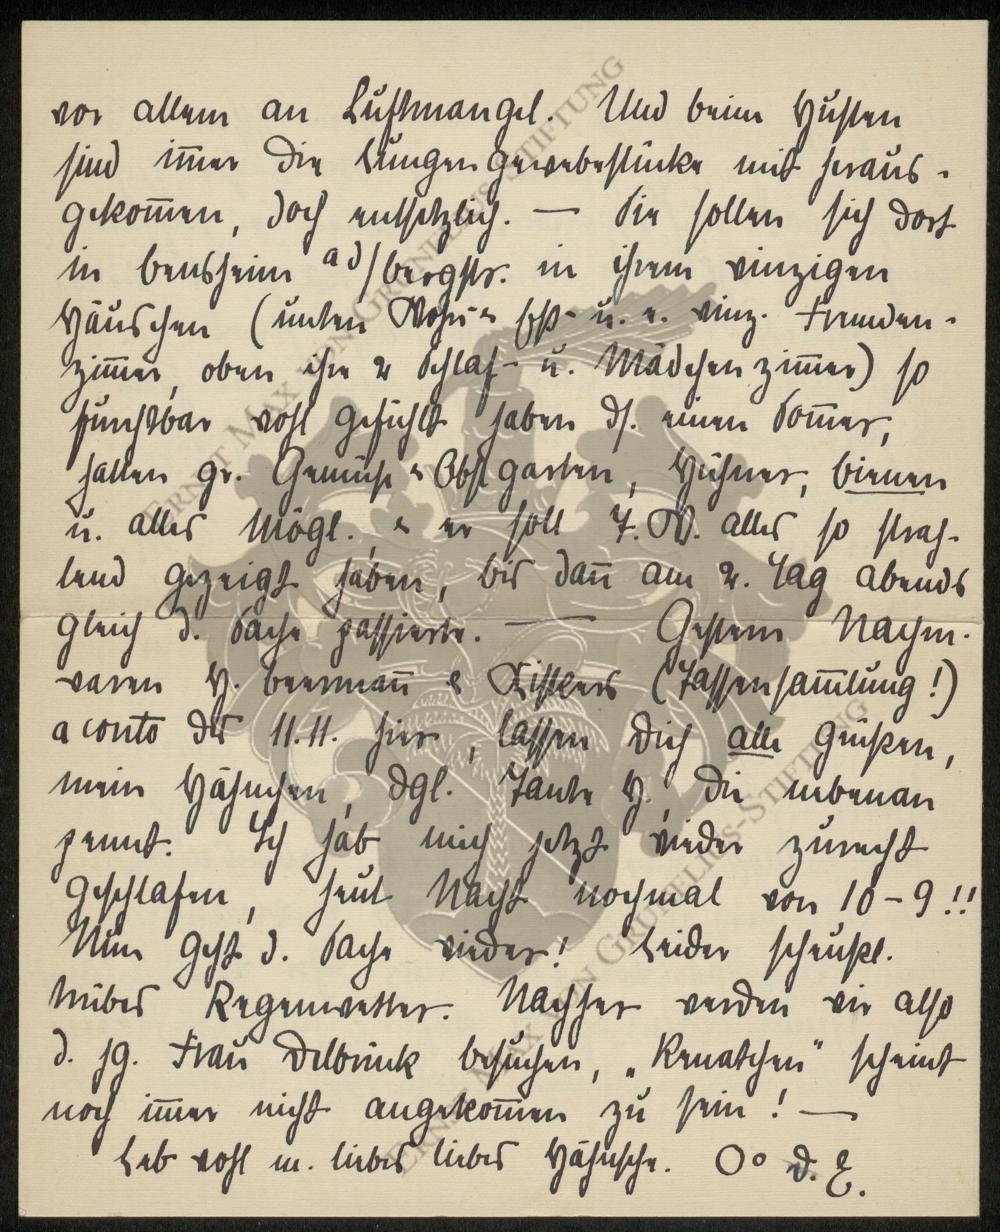 vor allem an Luftmangel. Und beim Husten
sind im̄er die Lungengewebestücke mit heraus-
gekom̄en, doch entsetzlich. — Sie sollen sich dort
in Bensheim a d/Bergstr. in ihrem winzigen
Häuschen (unten Wohn- & Eß- u. e. winz. Fremden-
zim̄er, oben ihre 2 Schlaf- u. Mädchenzim̄er) so
furchtbar wohl gefühlt haben ds. einen Som̄er,
hatten gr. Gemüse & Obstgarten, Hühner, Bienen
u. alles Mögl., & er soll T. W. alles so strah-
lend gezeigt haben, bis dan̄ am 2. Tag abends
gleich d. Sache passierte. — Gestern Nachm.
waren H. Beerman̄ & (Tassensam̄lung!)
a conto des 11.11. hier, lassen Dich alle grüßen,
mein Hähnchen, dgl. Tante H., die nebenan
pennt. Ich hab mich jetzt wieder zurecht
geschlafen, heut Nacht nochmal von 10-9!!
Nun geht d. Sache wieder! Leider scheußl.
trübes Regenwetter. Nachher werden wir also
d. jg. Frau Delbrück besuchen, „Renatchen" scheint
noch im̄er nicht angekom̄en zu sein! —
Leb wohl m. liebes liebes Hähnche. Oo d. E.
ERNST MAX VON GRUNELIUS-STIFTUNG
ERNST MAX VON GRUNELIUS-STIFTUNG